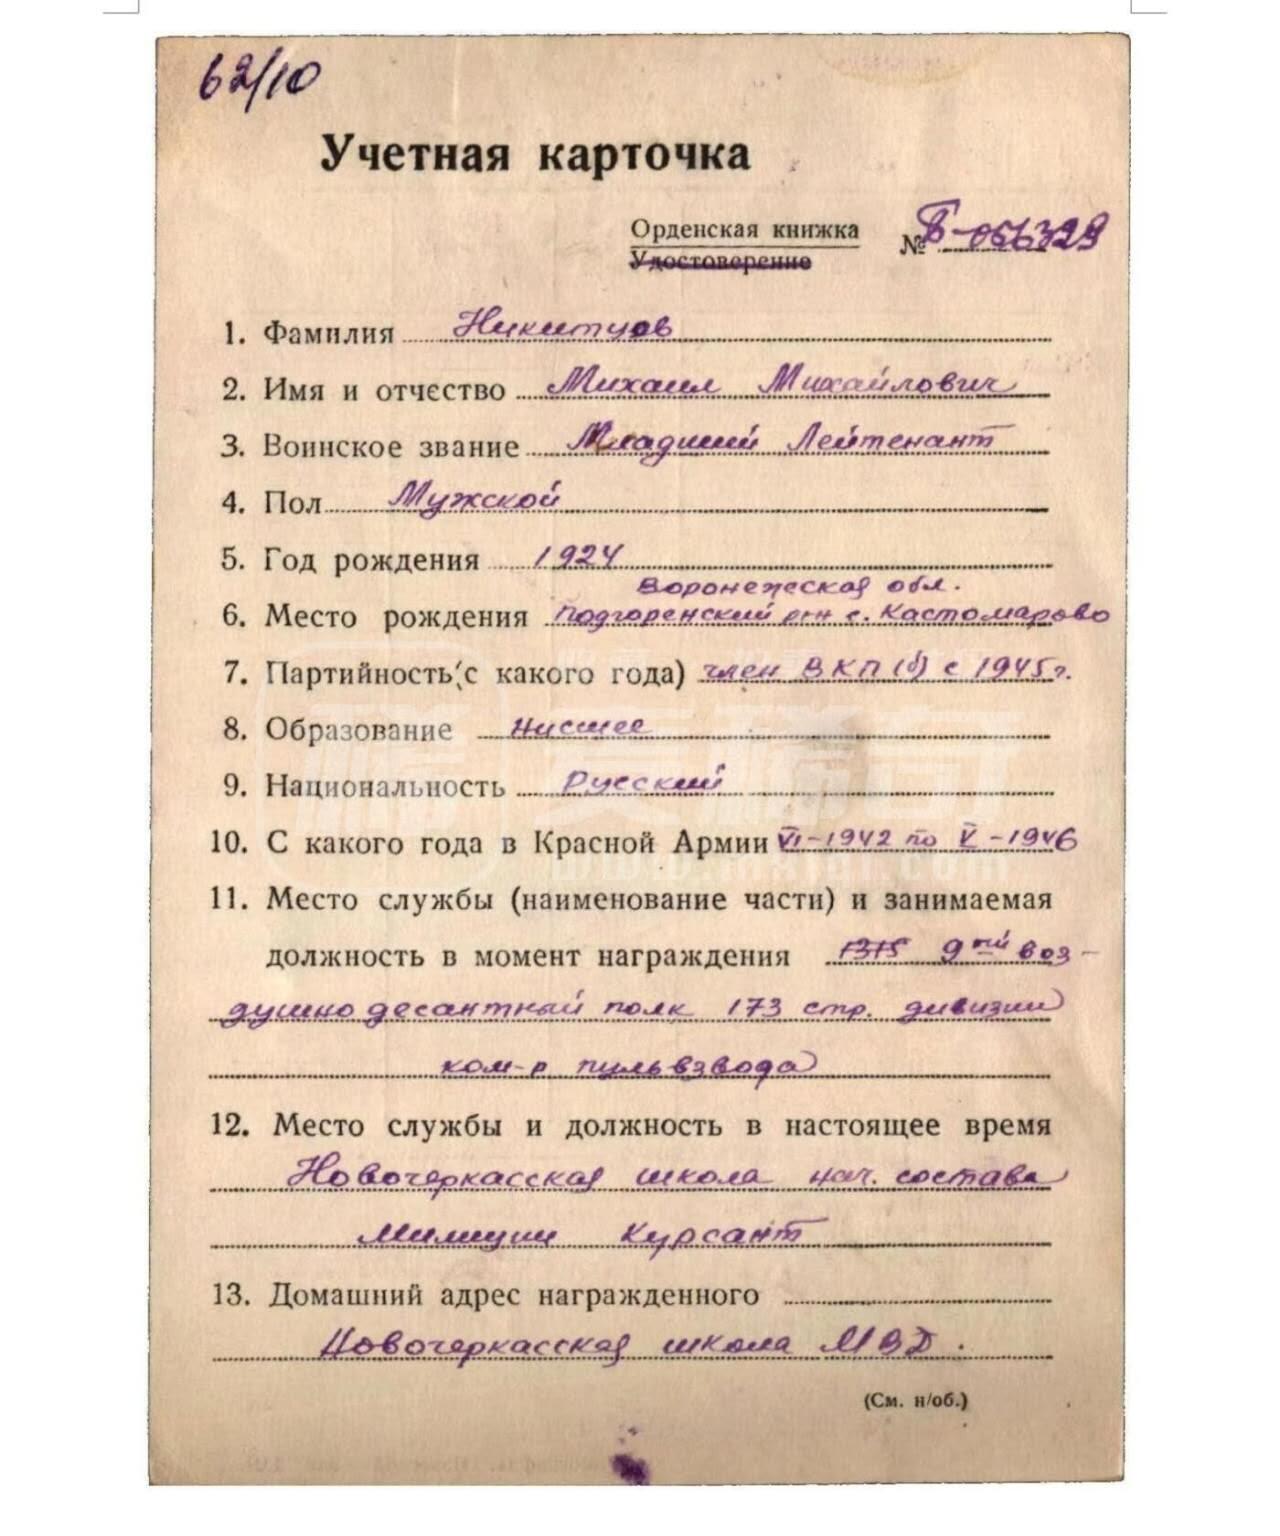 62/10
Учетная карточка
Орденская книжка
Удостоверение
№ Б-056329
1. Фамилия Никитцов
2. Имя и отчество Михаил Михайлович
3. Воинское звание Младший Лейтенант
4. Пол Мужской
5. Год рождения 1924
Воронежская обл.
6. Место рождения Подгоренский р-н с. Кастомарово
7. Партийность (с какого года) член ВКП(б) с 1945 г.
8. Образование нисшее
9. Национальность Русский
10. С какого года в Красной Армии VI-1942 по V-1946
11. Место службы (наименование части) и занимаемая
должность в момент награждения 1315 9тый воз-
душно десантный полк 173 стр. дивизии
ком-р пульвзвода
12. Место службы и должность в настоящее время
Новочеркасская школа нач. состава
Милиции Курсант
13. Домашний адрес награжденного
Новочеркасская школа МВД.
(См. н/об.)